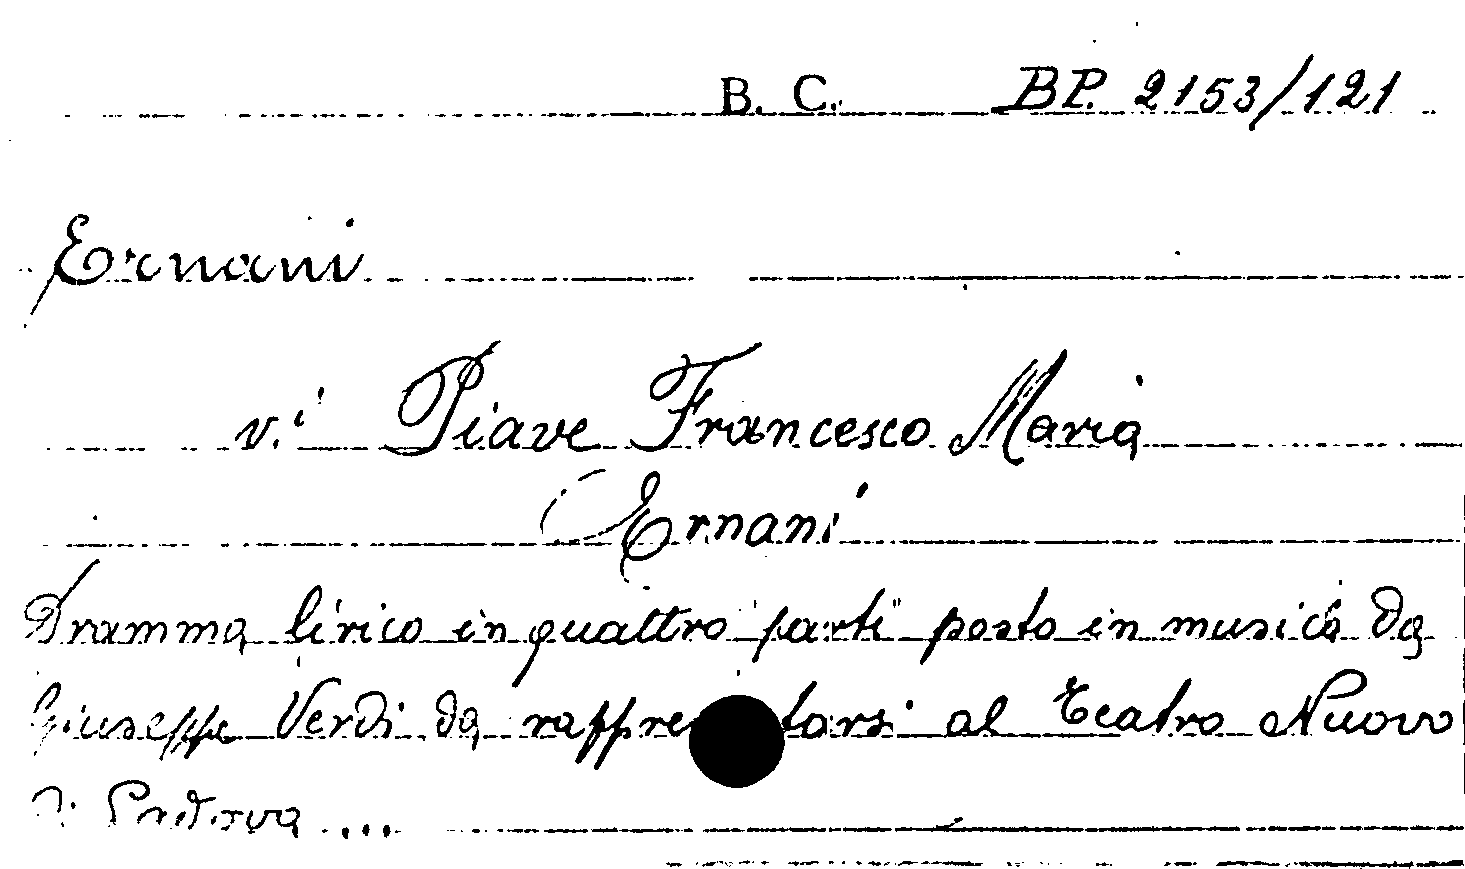 B. C. BP. 2153/121
Ernani
v.i Piave Francesco Maria
Ernani
Dramma lirico in quattro parti posto in musica da
Giuseppe Verdi da rappre tarsi al Teatro Nuovo
di Padova ...